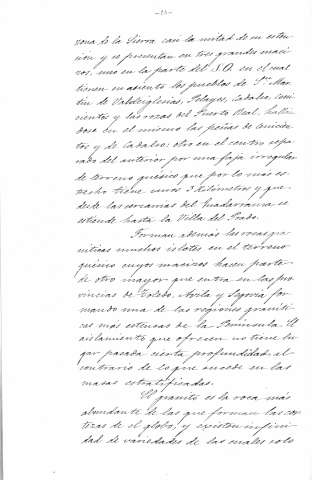 -15-
zona de la Sierra, con la mitad de su esten-
sion y se presentan en tres grandes maci-
zos, uno en la parte del S.O. en el cual
tienen su asiento los pueblos de Sn. Mar-
tin de Valdeiglesias, Pelayos, Cadalso, Ceni-
cientos y las rozas del Puerto Real, hallan-
dose en el mismo las peñas de Cenicien-
tos y de Cadalso: otro en el centro sepa-
rado del anterior por una faja irregular
de terreno gnésico que por lo mas es-
trecho tiene unos 3 kilómetros y que
desde las cercanias del Guadarrama se
estiende hasta la Villa del Prado.
Forman además las rocas gra-
níticas muchos islotes en el terreno
gnésico cuyos macizos hacen parte
de otro mayor que entra en las pro-
vincias de Toledo, Avila y Segovia for-
mando una de las regiones graníti-
cas más estensas de la Península. El
aislamiento que ofrecen no tiene lu-
gar pasada cierta profundidad al
contrario de lo que sucede en las
masas estratificadas.
El granito es la roca más
abundante de las que forman las cor-
tezas de el globo, y existen infini-
dad de variedades de las cuales solo